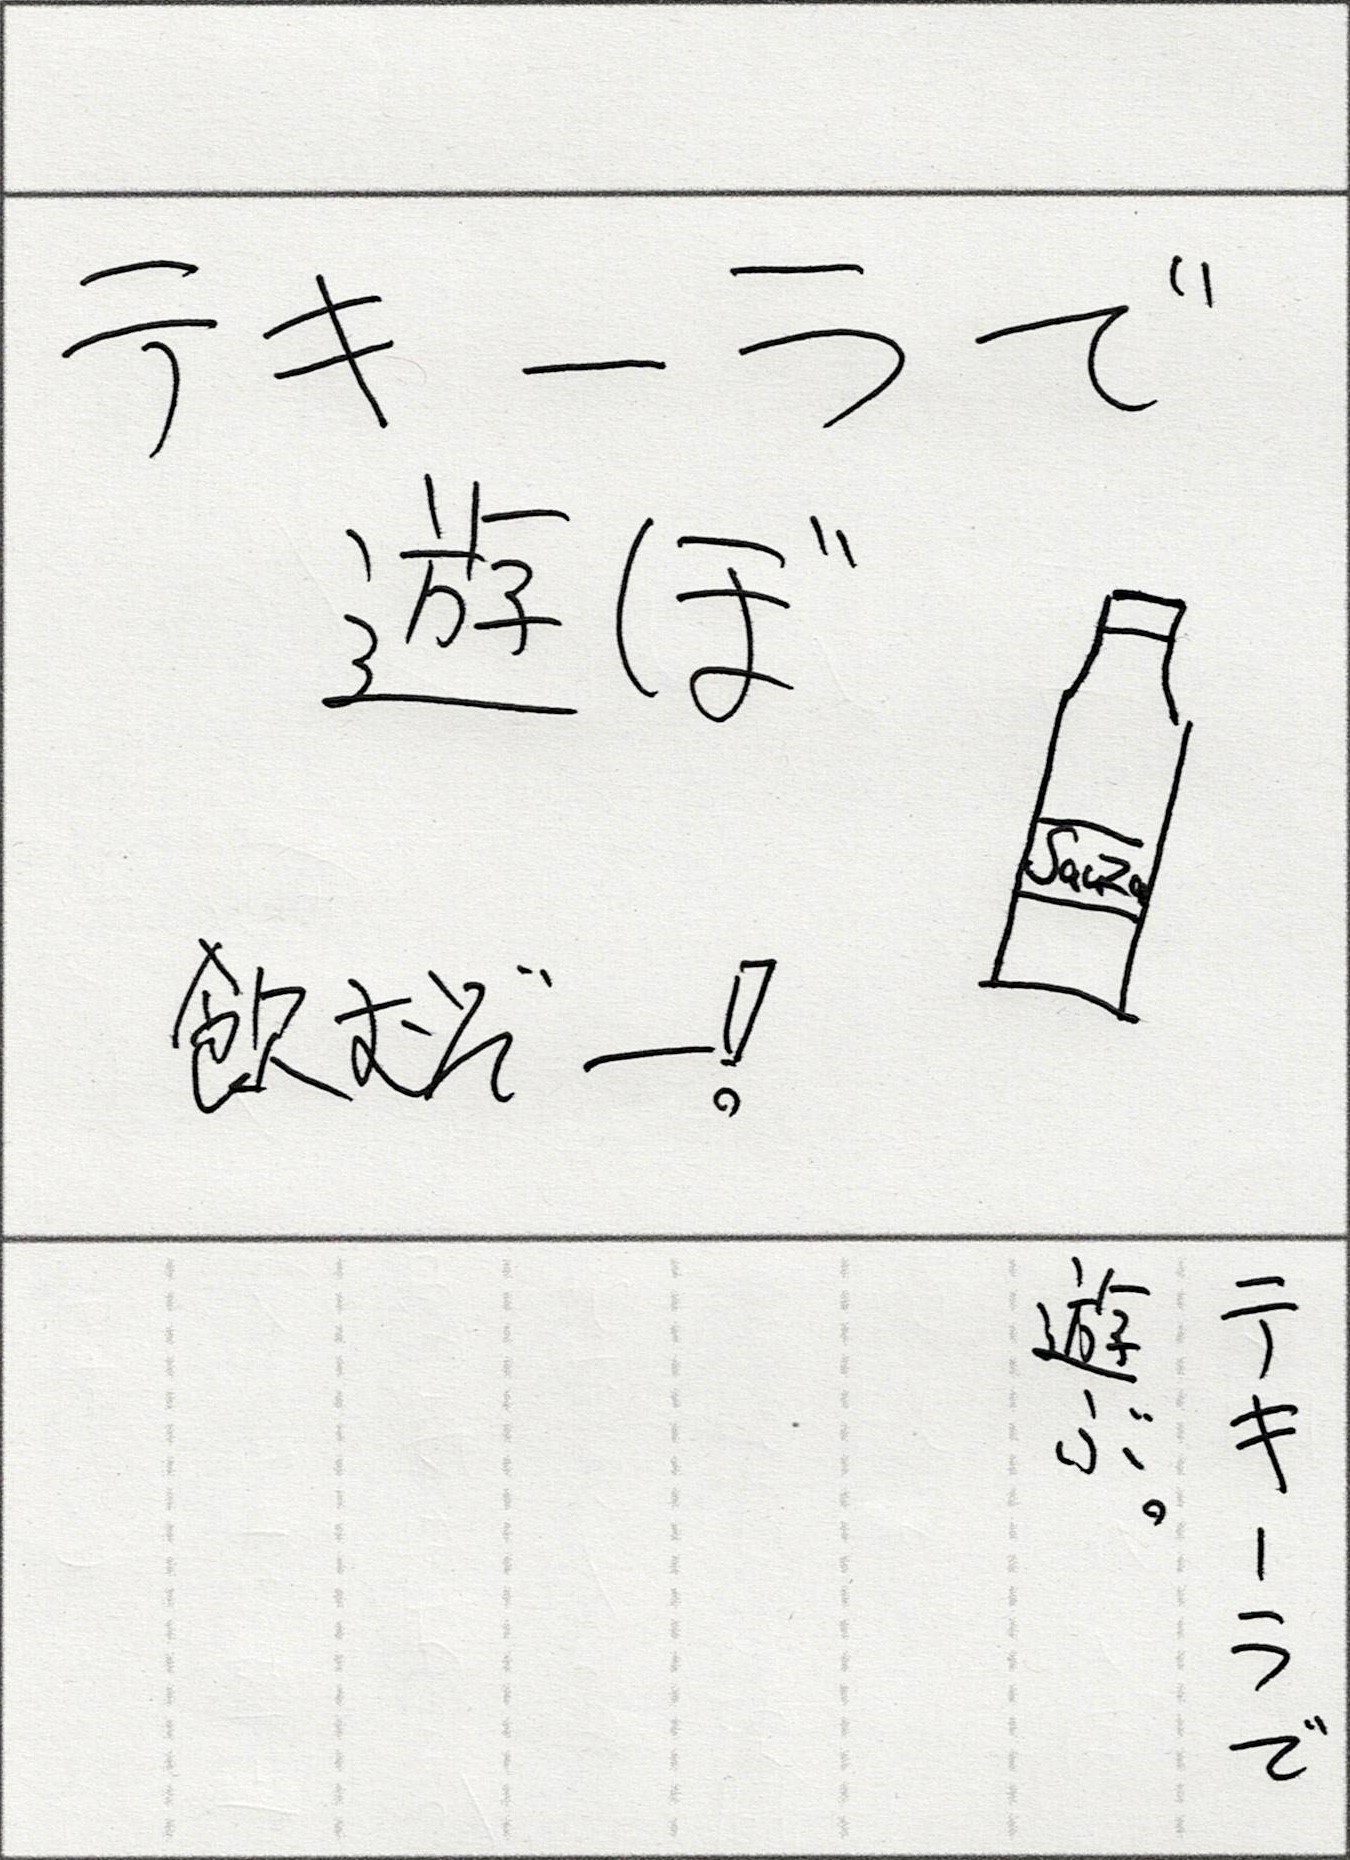 テキーラで
遊ぼ
Sauza
飲むぞー!
テキーラで
遊ぶ。